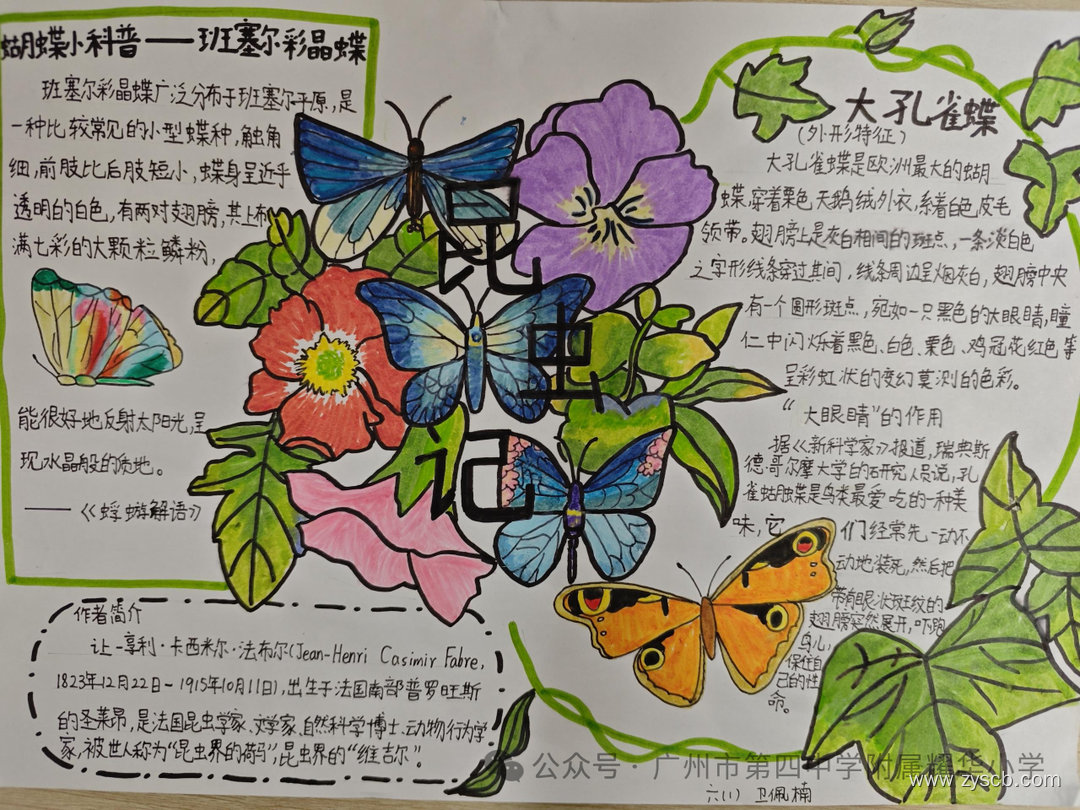 蝴蝶小科普——班塞尔彩晶蝶
班塞尔彩晶蝶广泛分布于班塞尔平原,是
一种比较常见的小型蝶种,触角
细,前肢比后肢短小,蝶身呈近乎
透明的白色,有两对翅膀,其上布
满七彩的大颗粒鳞粉,
能很好地反射太阳光,呈
现水晶般的质地。
——《蜉蝣解语》
昆
虫
记
大孔雀蝶
(外形特征)
大孔雀蝶是欧洲最大的蝴
蝶,穿着栗色天鹅绒外衣,系着白色皮毛
领带。翅膀上是灰白相间的斑点,一条淡白色
之字形线条穿过其间,线条周边呈烟灰白,翅膀中央
有一个圆形斑点,宛如一只黑色的大眼睛,瞳
仁中闪烁着黑色、白色、栗色、鸡冠花红色等
呈彩虹状的变幻莫测的色彩。
“大眼睛”的作用
据《新科学家》报道,瑞典斯
德·哥尔摩大学的研究人员说,孔
雀蛱蝶是鸟类最爱吃的一种美
味,它们经常先一动不
动地装死,然后把
带有眼状斑纹的
翅膀突然展开,吓跑
鸟儿,
保住自
己的性
命。
作者简介
让-亨利·卡西米尔·法布尔(Jean-Henri Casimir Fabre,
1823年12月22日-1915年10月11日),出生于法国南部普罗旺斯
的圣莱昂,是法国昆虫学家、文学家、自然科学博士、动物行为学
家,被世人称为“昆虫界的荷马”,昆虫界的“维吉尔”。
公众号·广州市第四中学附属耀华小学
www.zyscb.com
六(1) 卫佩楠